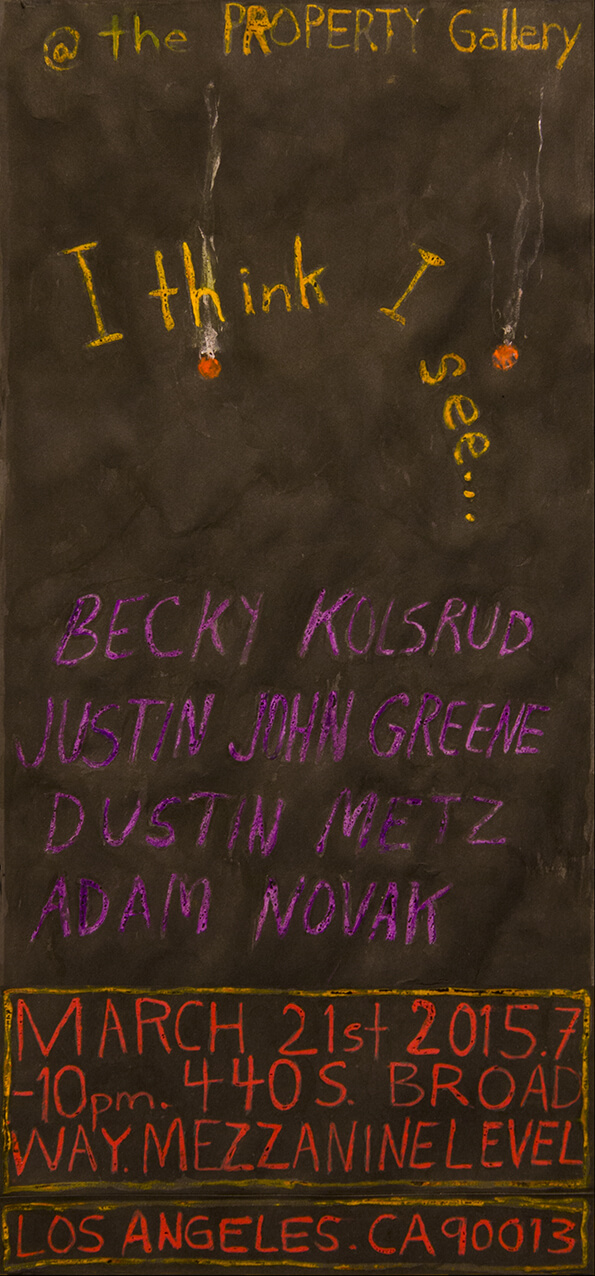 @ the PROPERTY Gallery
I think I
see...
BECKY KOLSRUD
JUSTIN JOHN GREENE
DUSTIN METZ
ADAM NOVAK
MARCH 21st 2015.7
-10pm. 440 S. BROAD
WAY. MEZZANINE LEVEL
LOS ANGELES. CA 90013